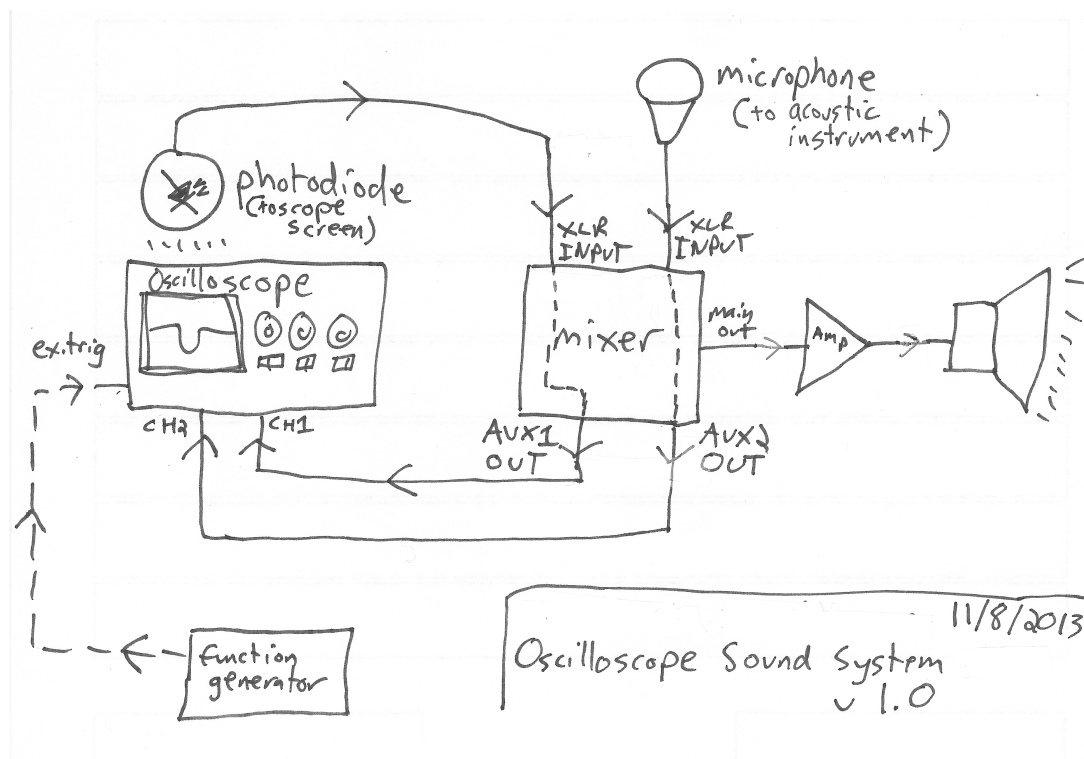 microphone
(to acoustic
instrument)
photodiode
(to scope
screen)
XLR
INPUT
XLR
INPUT
Oscilloscope
mixer
main
out
Amp
ex.trig
CH2
CH1
AUX1
OUT
AUX2
OUT
function
generator
11/8/2013
Oscilloscope Sound System
v 1.0